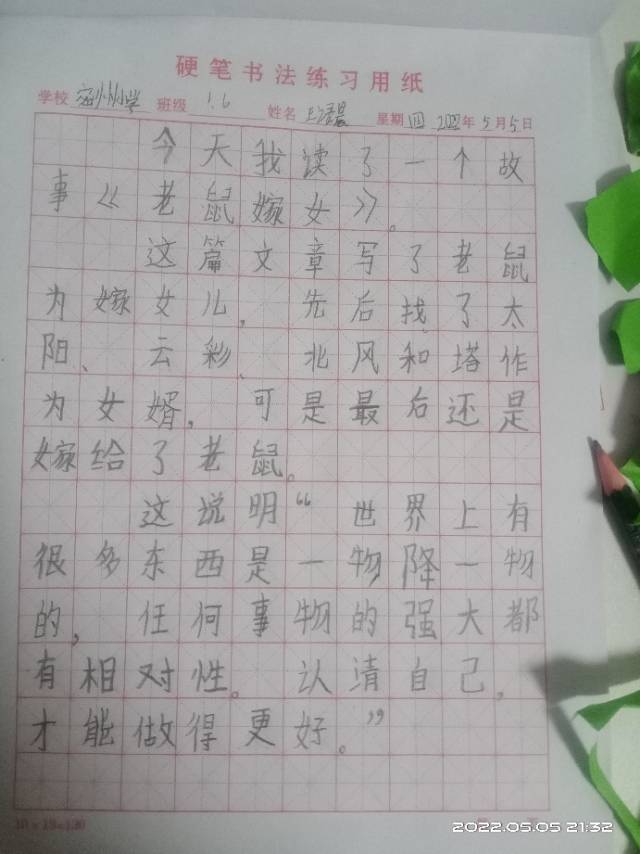 硬笔书法练习用纸
学校 班级 1.6 姓名 星期 四 2022年5月5日
今天我读了一个故
事《老鼠嫁女》。
这篇文章写了老鼠
为嫁女儿，先后找了太
阳、云彩、北风和塔作
为女婿，可是最后还是
嫁给了老鼠。
这说明“世界上有
很多东西是一物降一物
的，任何事物的强大都
有相对性。认清自己，
才能做得更好。”
10×13=130
2022.05.05 21:32